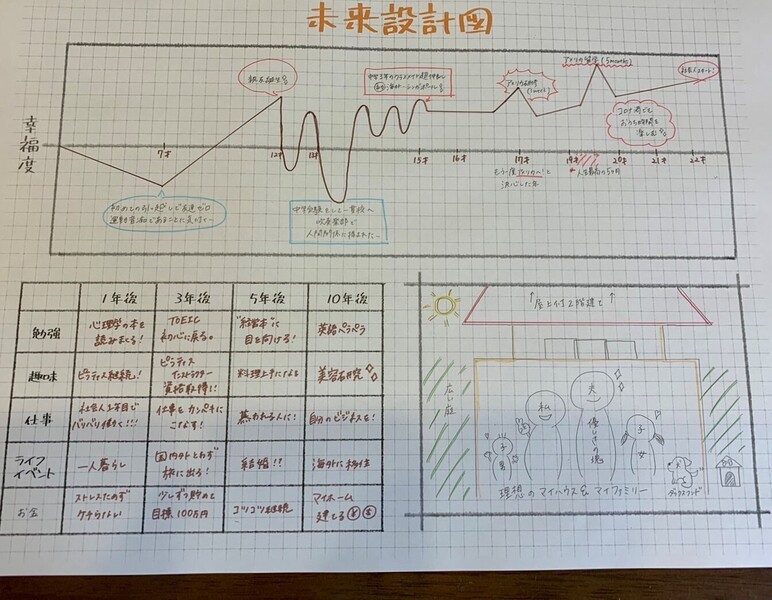 未来設計図
幸福度
7才
12才
13才
15才
16才
17才
19才
20才
21才
22才
銀メダル
初めての引っ越しで友達ゼロ
運動音痴であることに気付く…
中学受験をして一貫校へ
吹奏楽部で
人間関係に揉まれた…
アメリカ研修
アメリカ留学 (5months)
社会人スタート!
コロナ禍でも
おうち時間を
楽しむ
もう一度アメリカへ!と
決心した年
人生最高の5ヶ月
1年後
3年後
5年後
10年後
勉強
心理学の本を
読みまくる!
TOEIC
初心に戻る。
"経済"に
目を向ける!
英語ペラペラ
趣味
ピラティス継続!
ピラティス
インストラクター
資格取得!
料理上手になる
美容研究
仕事
社会人2年目で
バリバリ働く!!!
仕事をカンペキに
こなす!
慕われる人に!
自分のビジネスを!
ライフ
イベント
一人暮らし
国内外とわず
旅に出る!
結婚!?
海外に移住
お金
ストレスためず
ケチらない
少しずつ貯めて
目標100万円
コツコツ継続
マイホーム
建てる
↑屋上付2階建て↑
広い庭
私
夫
優しさの塊
子
男
子
女
ダックスフンド
理想のマイハウス&マイファミリー